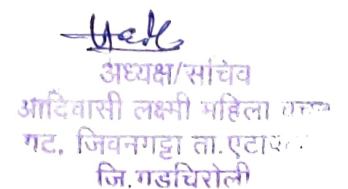 अध्यक्ष/सचिव
आदिवासी लक्ष्मी महिला बचत
गट, जिवनगट्टा ता.
जि.गडचिरोली